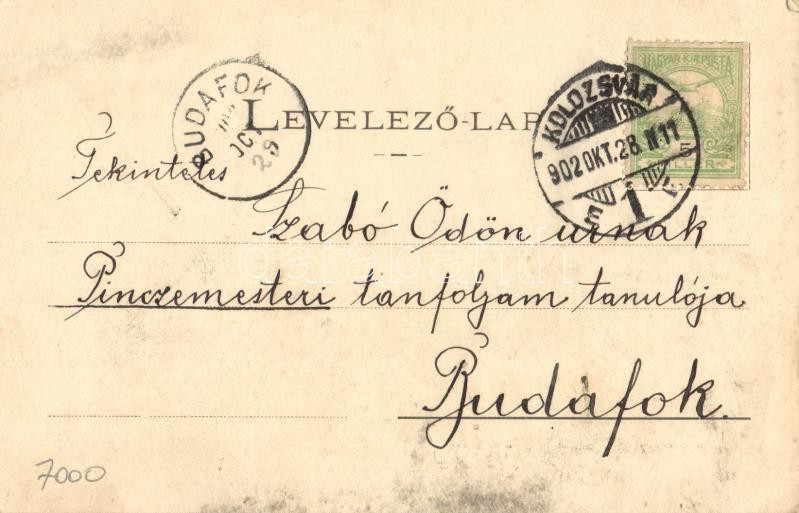 MAGYAR KIR. POSTA
BUDAFOK
OCT
29
LEVELEZŐ-LAP
KOLOZSVÁR
902 OKT. 28. N 11
1
Tekintetes
Szabó Ödön urnak
Pinczemesteri tanfolyam tanulója
Budafok.
7000
darabanth